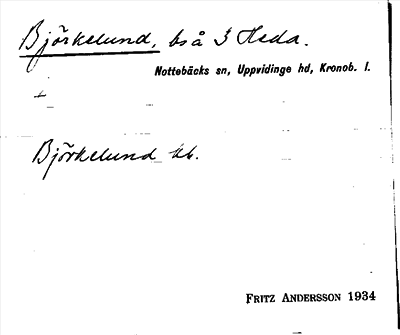 Björkelund, bs å 3 Heda.
Nottebäcks sn, Uppvidinge hd, Kronob. l.
Björkelund
FRITZ ANDERSSON 1934